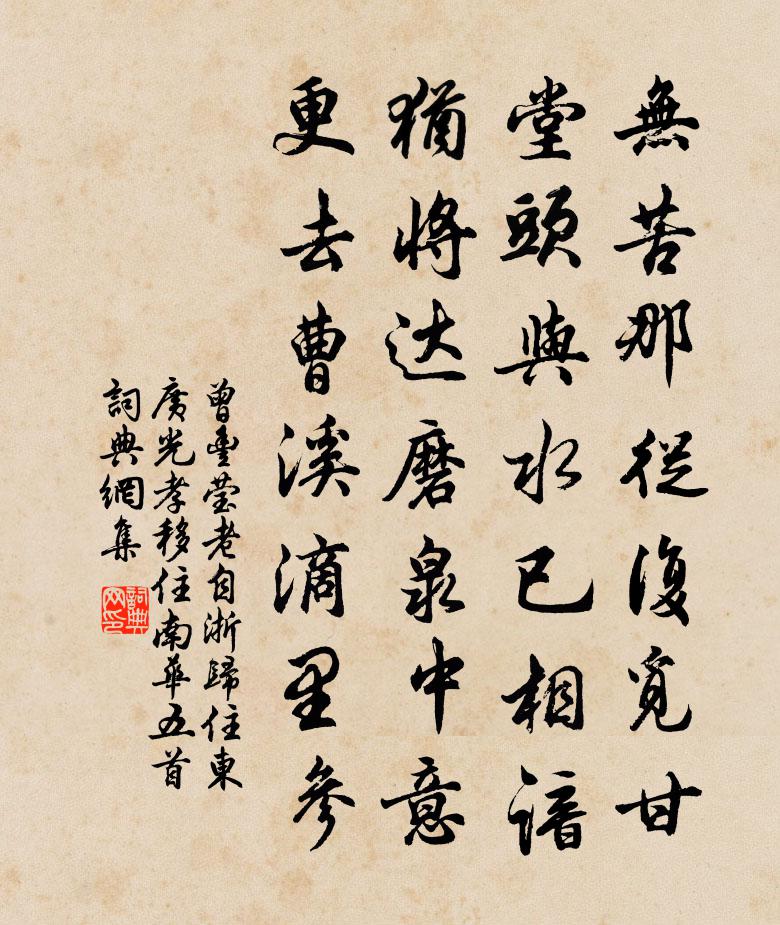 無苦那從復覓甘
堂頭與水已相諳
猶將达磨泉中意
更去曹溪滴里參
曾豐莹老自浙歸住東
廣光孝移住南華五首
詞典網集
詞典网印